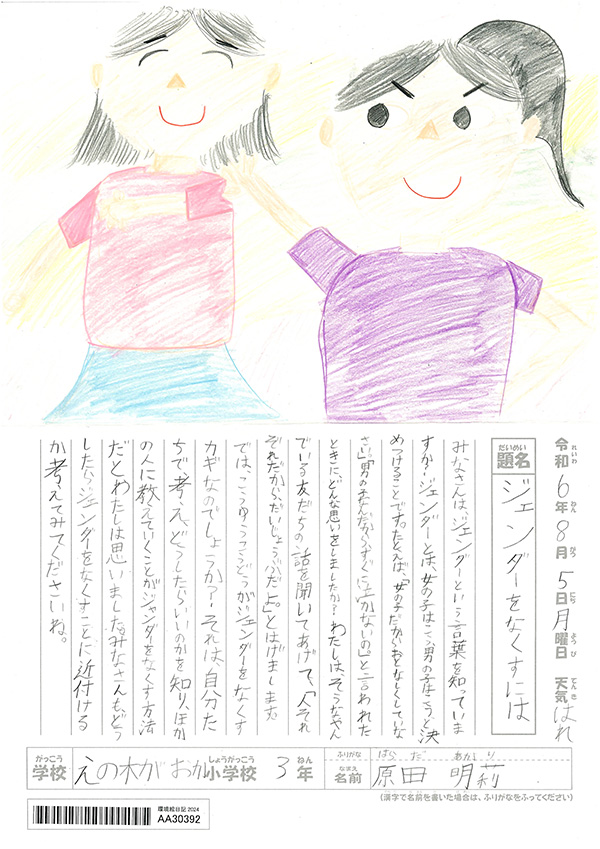 令和6年8月5日月曜日 天気 はれ
れいわ ねん がつ にち げつ ようび てんき
だいめい
題名 ジェンダーをなくすには
みなさんは、ジェンダーという言葉を知っていま
すか？ジェンダーとは、女の子はこう男の子はこうと決
めつけることです。たとえば、「女の子だからおとなしくしていな
さい。」「男の子なんだからすぐに泣かないの。」と言われた
ときに、どんな思いをしましたか？わたしは、そうなやん
でいる友だちの話を聞いてあげて、「人それ
ぞれだから、だいじょうぶだよ。」とはげまします。
では、こうゆうこうどうがジェンダーをなくす
カギなのでしょうか？それは、自分た
ちで、考え、どうしたらいいのかを知り、ほか
の人に教えていくことがジャンダーをなくす方法
だとわたしは思いました。みなさんもどう
したらジェンダーをなくすことに近付ける
か考えてみてくださいね。
がっこう しょうがっこう ねん
学校 えの木がおか小学校 3年
ふりがな はらだ あかり
なまえ
名前 原田 明莉
(漢字で名前を書いた場合は、ふりがなをふってください)
環境絵日記 2024
AA30392